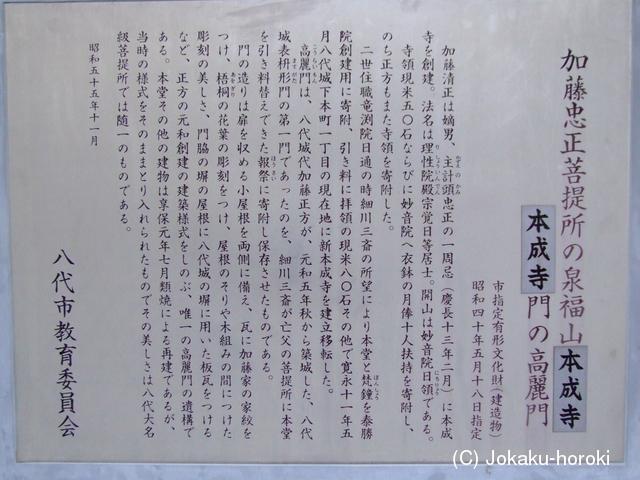 加藤忠正菩提所の泉福山本成寺
本成寺門の高麗門
市指定有形文化財(建造物)
昭和四十年五月十八日指定
加藤清正は嫡男、主計頭忠正の一周忌(慶長十三年二月)に本成
寺を創建。法名は理性院殿宗覚日等居士。開山は妙音院日領である。
寺領現米五〇石ならびに妙音院へ衣鉢の月俸十人扶持を寄附し、
のち正方もまた寺領を寄附した。
二世住職竜渕院日通の時細川三斎の所望により本堂と梵鐘を泰勝
院創建用に寄附、引き料に拝領の現米八〇石その他で寛永十一年五
月八代城下本町一丁目の現在地に新本成寺を建立移転した。
高麗門は、八代城代加藤正方が、元和五年秋から築城した、八代
城表枡形門の第一門であったのを、細川三斎が亡父の菩提所に本堂
を引き料替えできた報祭に寄附し保存させたものである。
門の造りは扉を収める小屋根を両側に備え、瓦に加藤家の家紋を
つけ、梧桐の花葉の彫刻をつけ、屋根のそりや木組みの間につけた
彫刻の美しさ、門脇の塀の屋根に八代城の塀に用いた板瓦をつける
など、正方の元和創建の建築様式をしのぶ、唯一の高麗門の遺構で
ある。本堂その他の建物は享保元年七月類焼による再建であるが、
当時の様式をそのままとり入れられたものでその美しさは八代大名
級菩提所では随一のものである。
昭和五十五年十一月
八代市教育委員会
(C) Jokaku-horoki